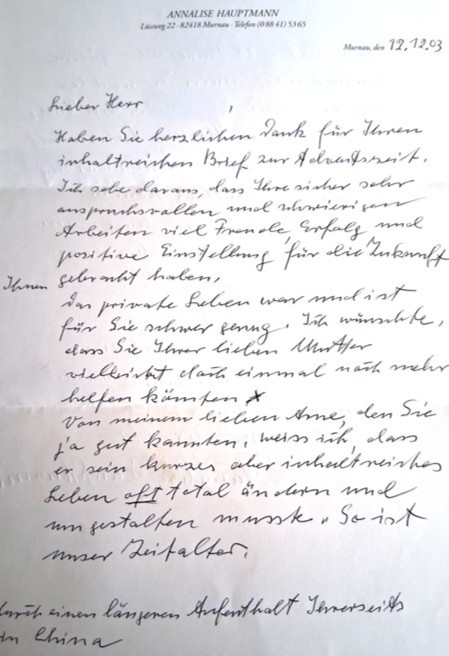 ANNALISE HAUPTMANN
Lüssweg 22 - 82418 Murnau - Telefon (0 88 41) 53 65
Murnau, den 12.12.03
Lieber Herr ,
Haben Sie herzlichen Dank für Ihren
inhaltreichen Brief zur Adventszeit.
Ich sehe daraus, dass Ihre sicher sehr
anspruchsvollen und schwierigen
Arbeiten viel Freude, Erfolg und
positive Einstellung für die Zukunft
Ihnen gebracht haben.
Das private Leben war und ist
für Sie schwer genug. Ich wünschte,
dass Sie Ihrer lieben Mutter
vielleicht doch einmal noch mehr
helfen könnten x
Von meinem lieben Arne, den Sie
ja gut kannten, weiss ich, dass
er sein kurzes aber inhaltreiches
Leben oft total ändern und
umgestalten musste. So ist
unser Zeitalter.
durch einen längeren Aufenthalt Ihrerseits
in China